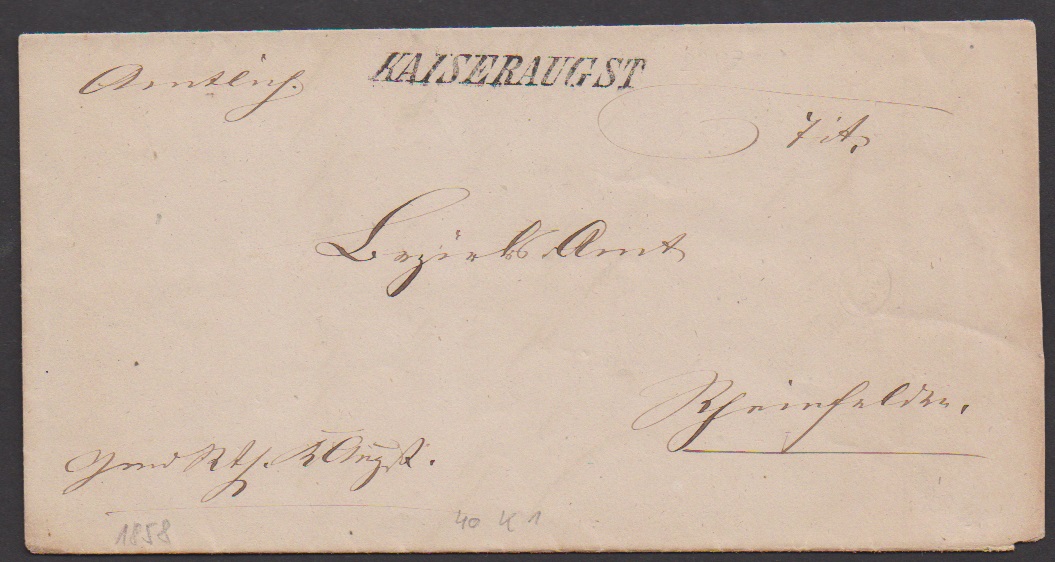 Amtlich.
KAISERAUGST
Tit.
Bezirks Amt
Rheinfelden.
Gmd Rth. K Augst.
1858
40 K 1